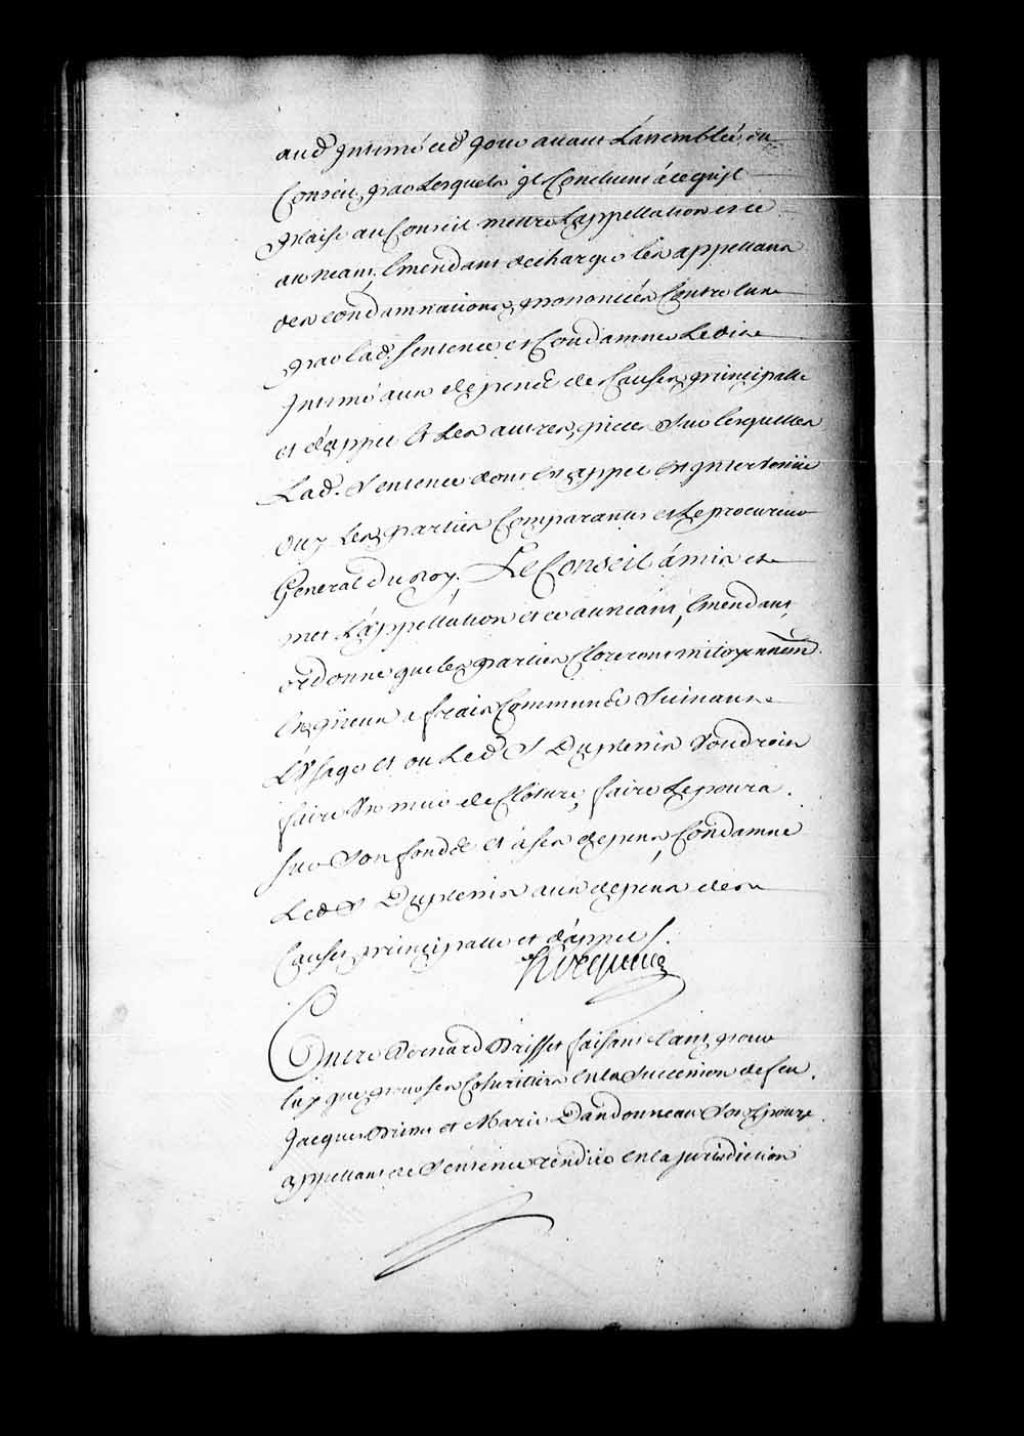 aud. Intimé ced. jour avant L'assemblée, du
Conseil, par Lesquels ils Concluent à ce qu'il
plaise au Conseil mettre L'appellation et ce
au neant, Emendant decharger les appellans
des condamnations, prononcées Contre eux
par lad. Sentence et Condamner Ledit
Intimé aux depens des Causes, principalle
et d'appel Et Les autres, pieces sur lesquelles
Lad. Sentence dont est appel est intervenüe
ouy Les, parties Comparantes et Le procureur
General du Roy. Le Conseil à mis et
met L'appellation et ce au neant, Emendant,
ordonne que les parties Cloreront mitoyennem.
Et a frais Communs Suivant
L'Usage et ou Led. S. Duplessis Voudroit
faire Un mur de Cloture, faire Le poura
sur Son fonds et à ses depens, Condamne
Led. S. Duplessis aux depens des
Causes, principalle et d'appel /.
Hocquart
Entre Bernard Brisset faisant tant pour
luy que pour ses Coheritiers en la Succession de feu
Jacques Brisset et Marie Dandonneau Son Epouze
appellans de Sentence rendüe en la jurisdiction